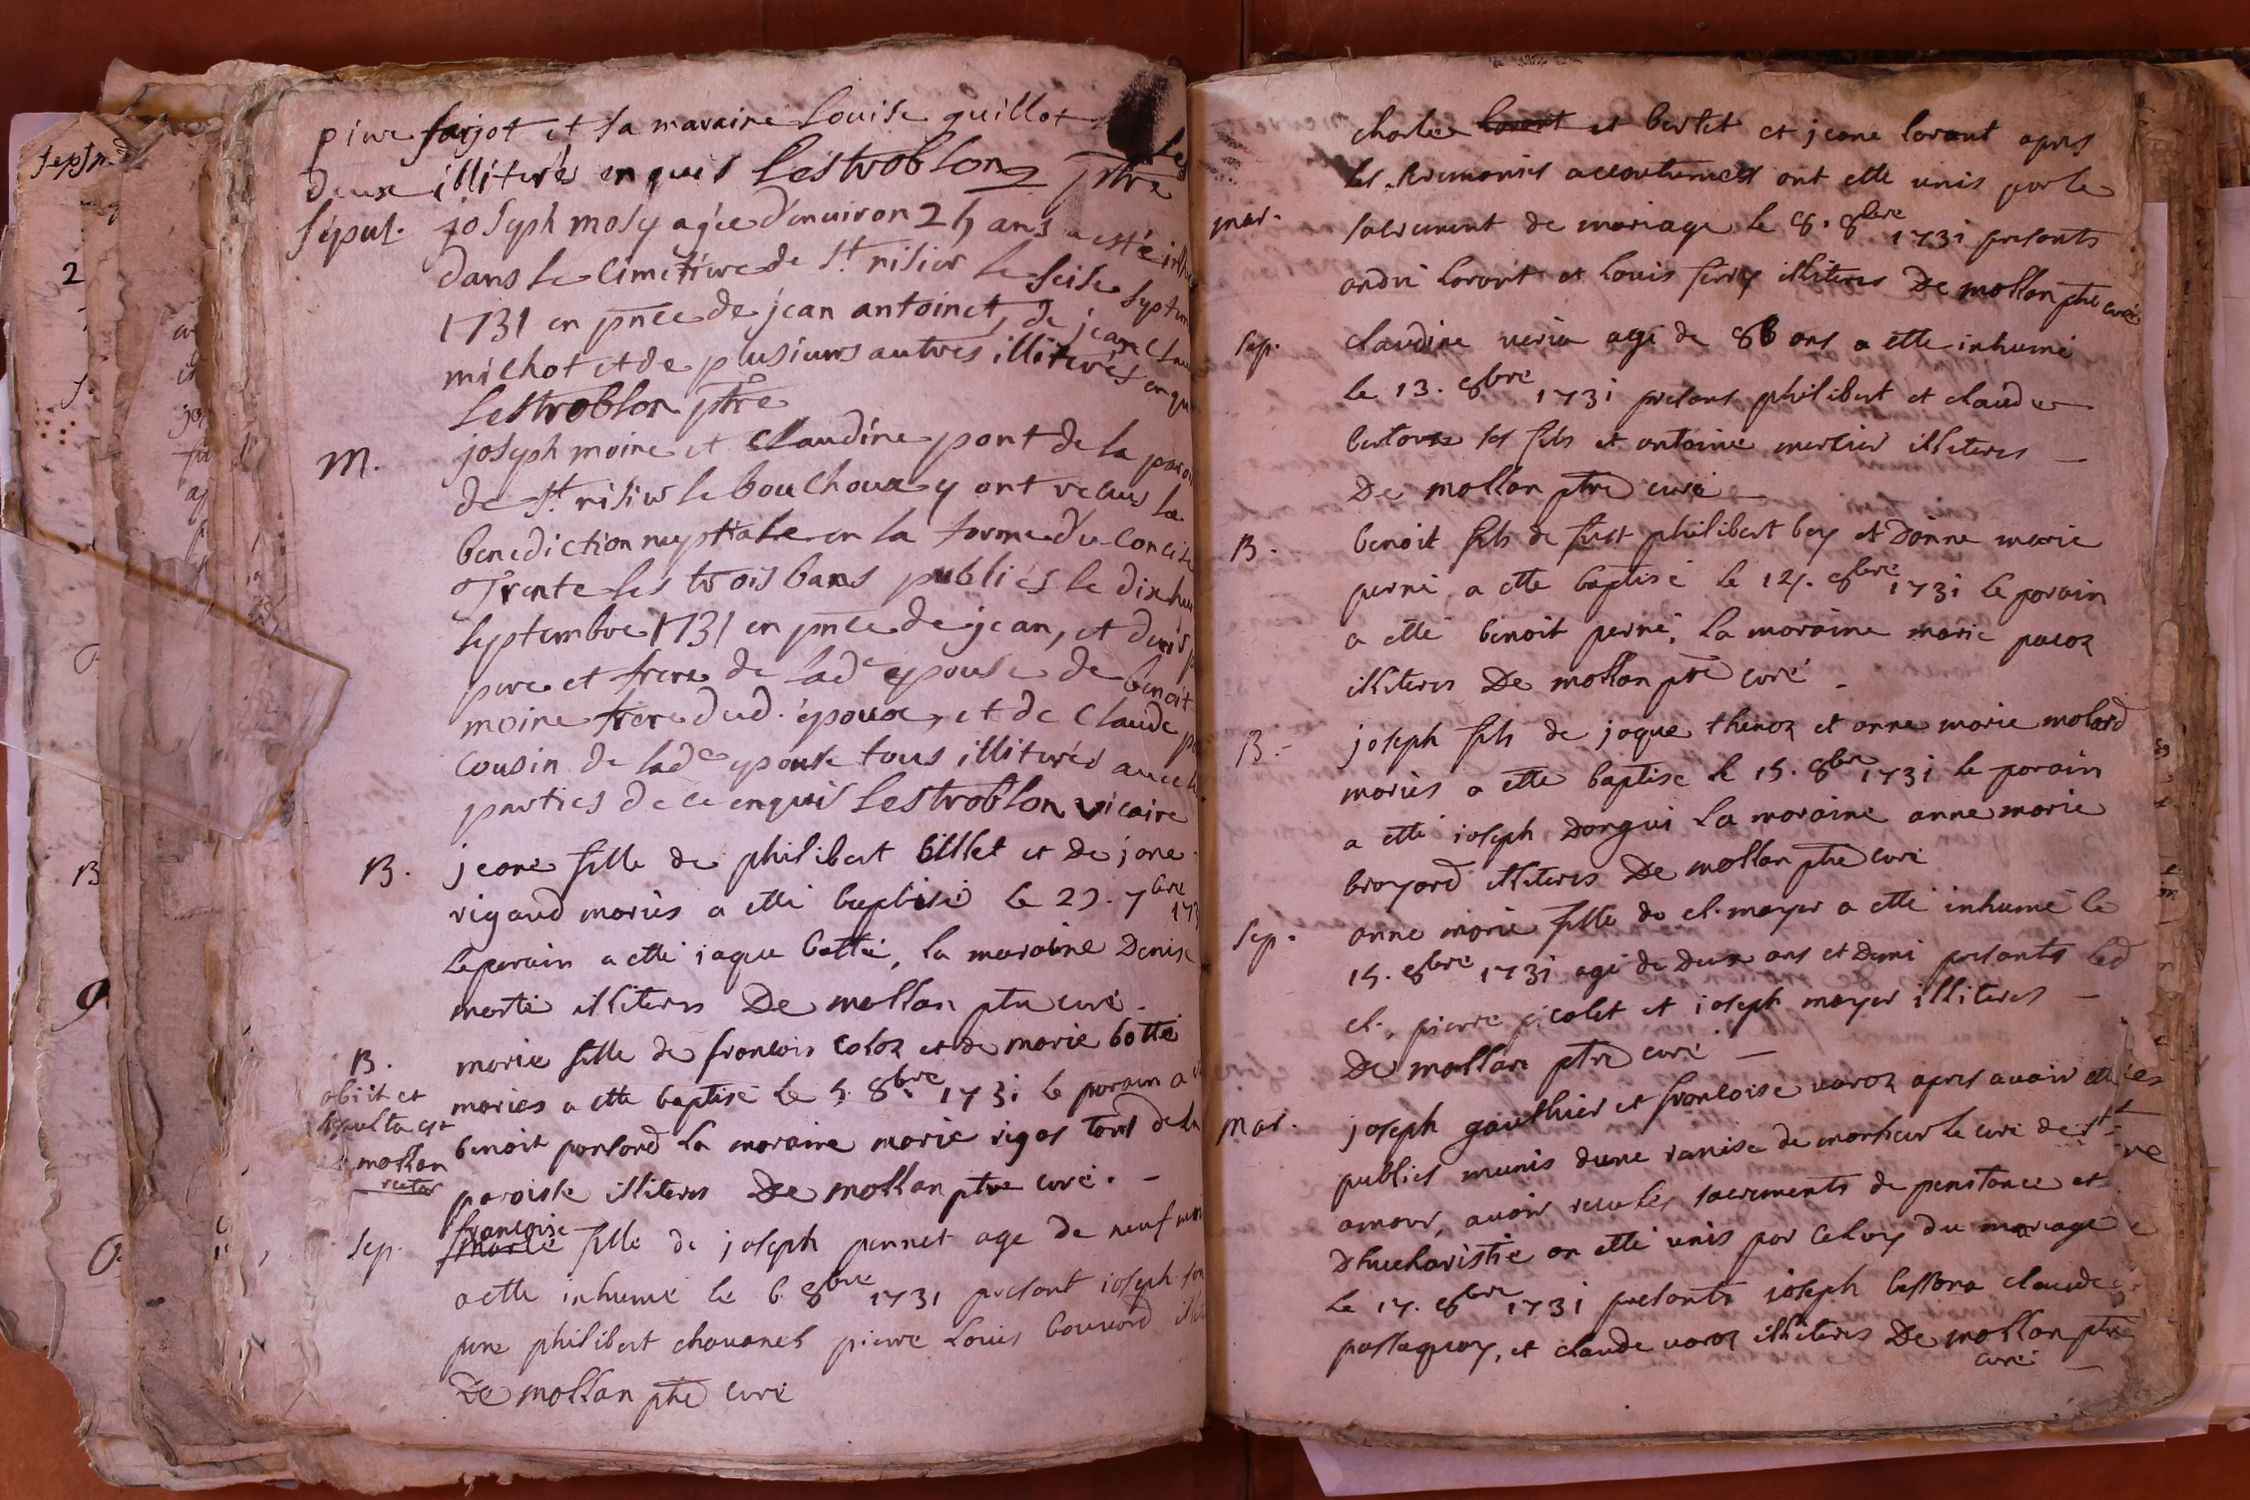 pierre farjot et sa maraine Louise guillot
deux illiterés enquis Lestroblon ptre
sepul. joseph mosy agée d'enuiron 25 ans a esté
dans le cimetiere de st. nisier le seise septem
1731 en pnce de jean antoinet, de jean
michot et de plusieurs autres illiterés enqu
Lestroblon ptre
M. joseph moine et Claudine pont de la paroi
de st. nisier le bouchoux y ont recus la
benediction nuptiale en la forme du Concile
Trente les trois bans publiés le dixhui
septembre 1731 en pnce de jean, et denis p
pere et frere de lade epouse de benoit
moine frere dud. epoux, et de claude
cousin de lade epouse tous illiterés auec l
parties de ce enquis Lestroblon vicaire
B. jeane fille de philibert billet et de jane
rigaud mariés a etté baptisé le 29. 7bre 173
le parain a etté iaque botté, la maraine Denise
marté illiteres De mollan ptre curé.
B. marie fille de francois coloz et de marie botté
obiit et
mariés a etté baptisé le 5. 8bre 1731 le parain a
sepulta est
benoit ponsard la maraine marie rigos tous de la
mollan
rector
paroisse illiteres De mollan ptre curé. -
francoise
Sep. marie fille de joseph pennet age de neuf moi
a etté inhumé le 6 8bre 1731 presant ioseph son
pere philibert chauanel pierre Louis bouuard
De mollan ptre curé
charles lorant et bertet et jeane lorant apres
les seremonies accoutumées ont etté unis par le
mar. sacrement de mariage le 8. 8bre 1731 presants
andré lorant et louis ferry illiteres De mollan ptre curé
Sep. claudine agé de 86 ans a etté inhumé
le 13. 8bre 1731 presans philibert et claude
ses fils et antoine mercier illiteres -
De mollan ptre curé -
B. benoit fils de fust philibert bey et Donne marie
perné a etté baptisé le 14. 8bre 1731 le parain
a etté benoit perné, la maraine marie pacoz
illiteres De mollan ptre curé -
B. - joseph fils de jaque thenoz et anne marie molard
mariés a etté baptisé le 15. 8bre 1731 le parain
a etté ioseph Dongui la maraine anne marie
broyard illiteres De mollan ptre curé
Sep. - anne marie fille de cl. mayer a etté inhumé le
15. 8bre 1731 agé de Deux ans et Demi presants led
cl., pierre picolet et ioseph mayer illiteres -
De mollan ptre curé -
Mar. joseph gauthier et francoise varoz apres auoir etté
publies munis dune remise de monsieur le curé de st.
amour, auoir recu les sacrements de penitance et
Dheucharistie on etté unis par celuy du mariage
le 17. 8bre 1731 presants ioseph claude
passaquay, et claude varoz illiteres De mollan ptre
curé -